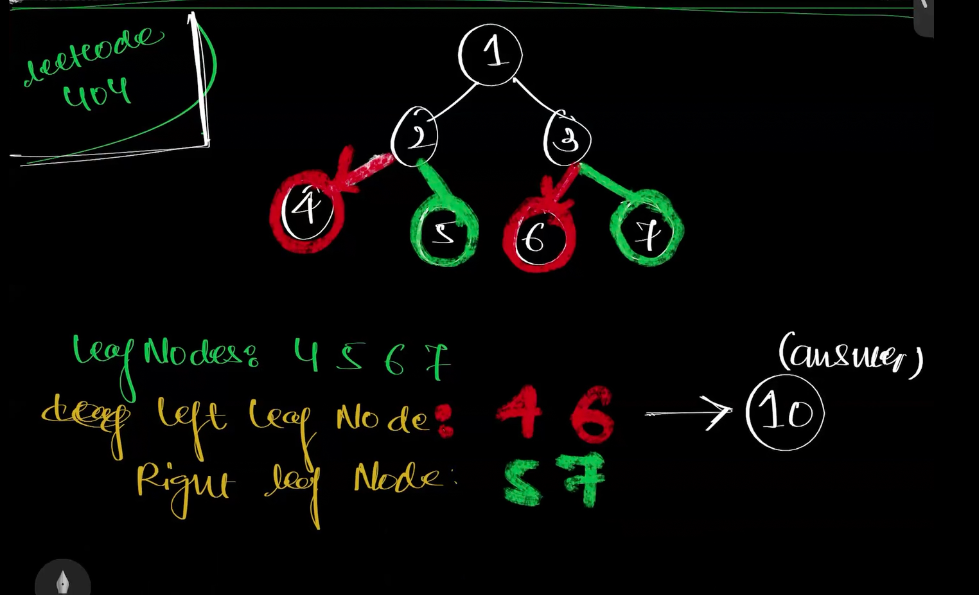 leetcode
404
1
2 3
4 5 6 7
leaf Nodes: 4 5 6 7
left leaf Node: 4 6 → 10
(answer)
Right leaf Node: 5 7